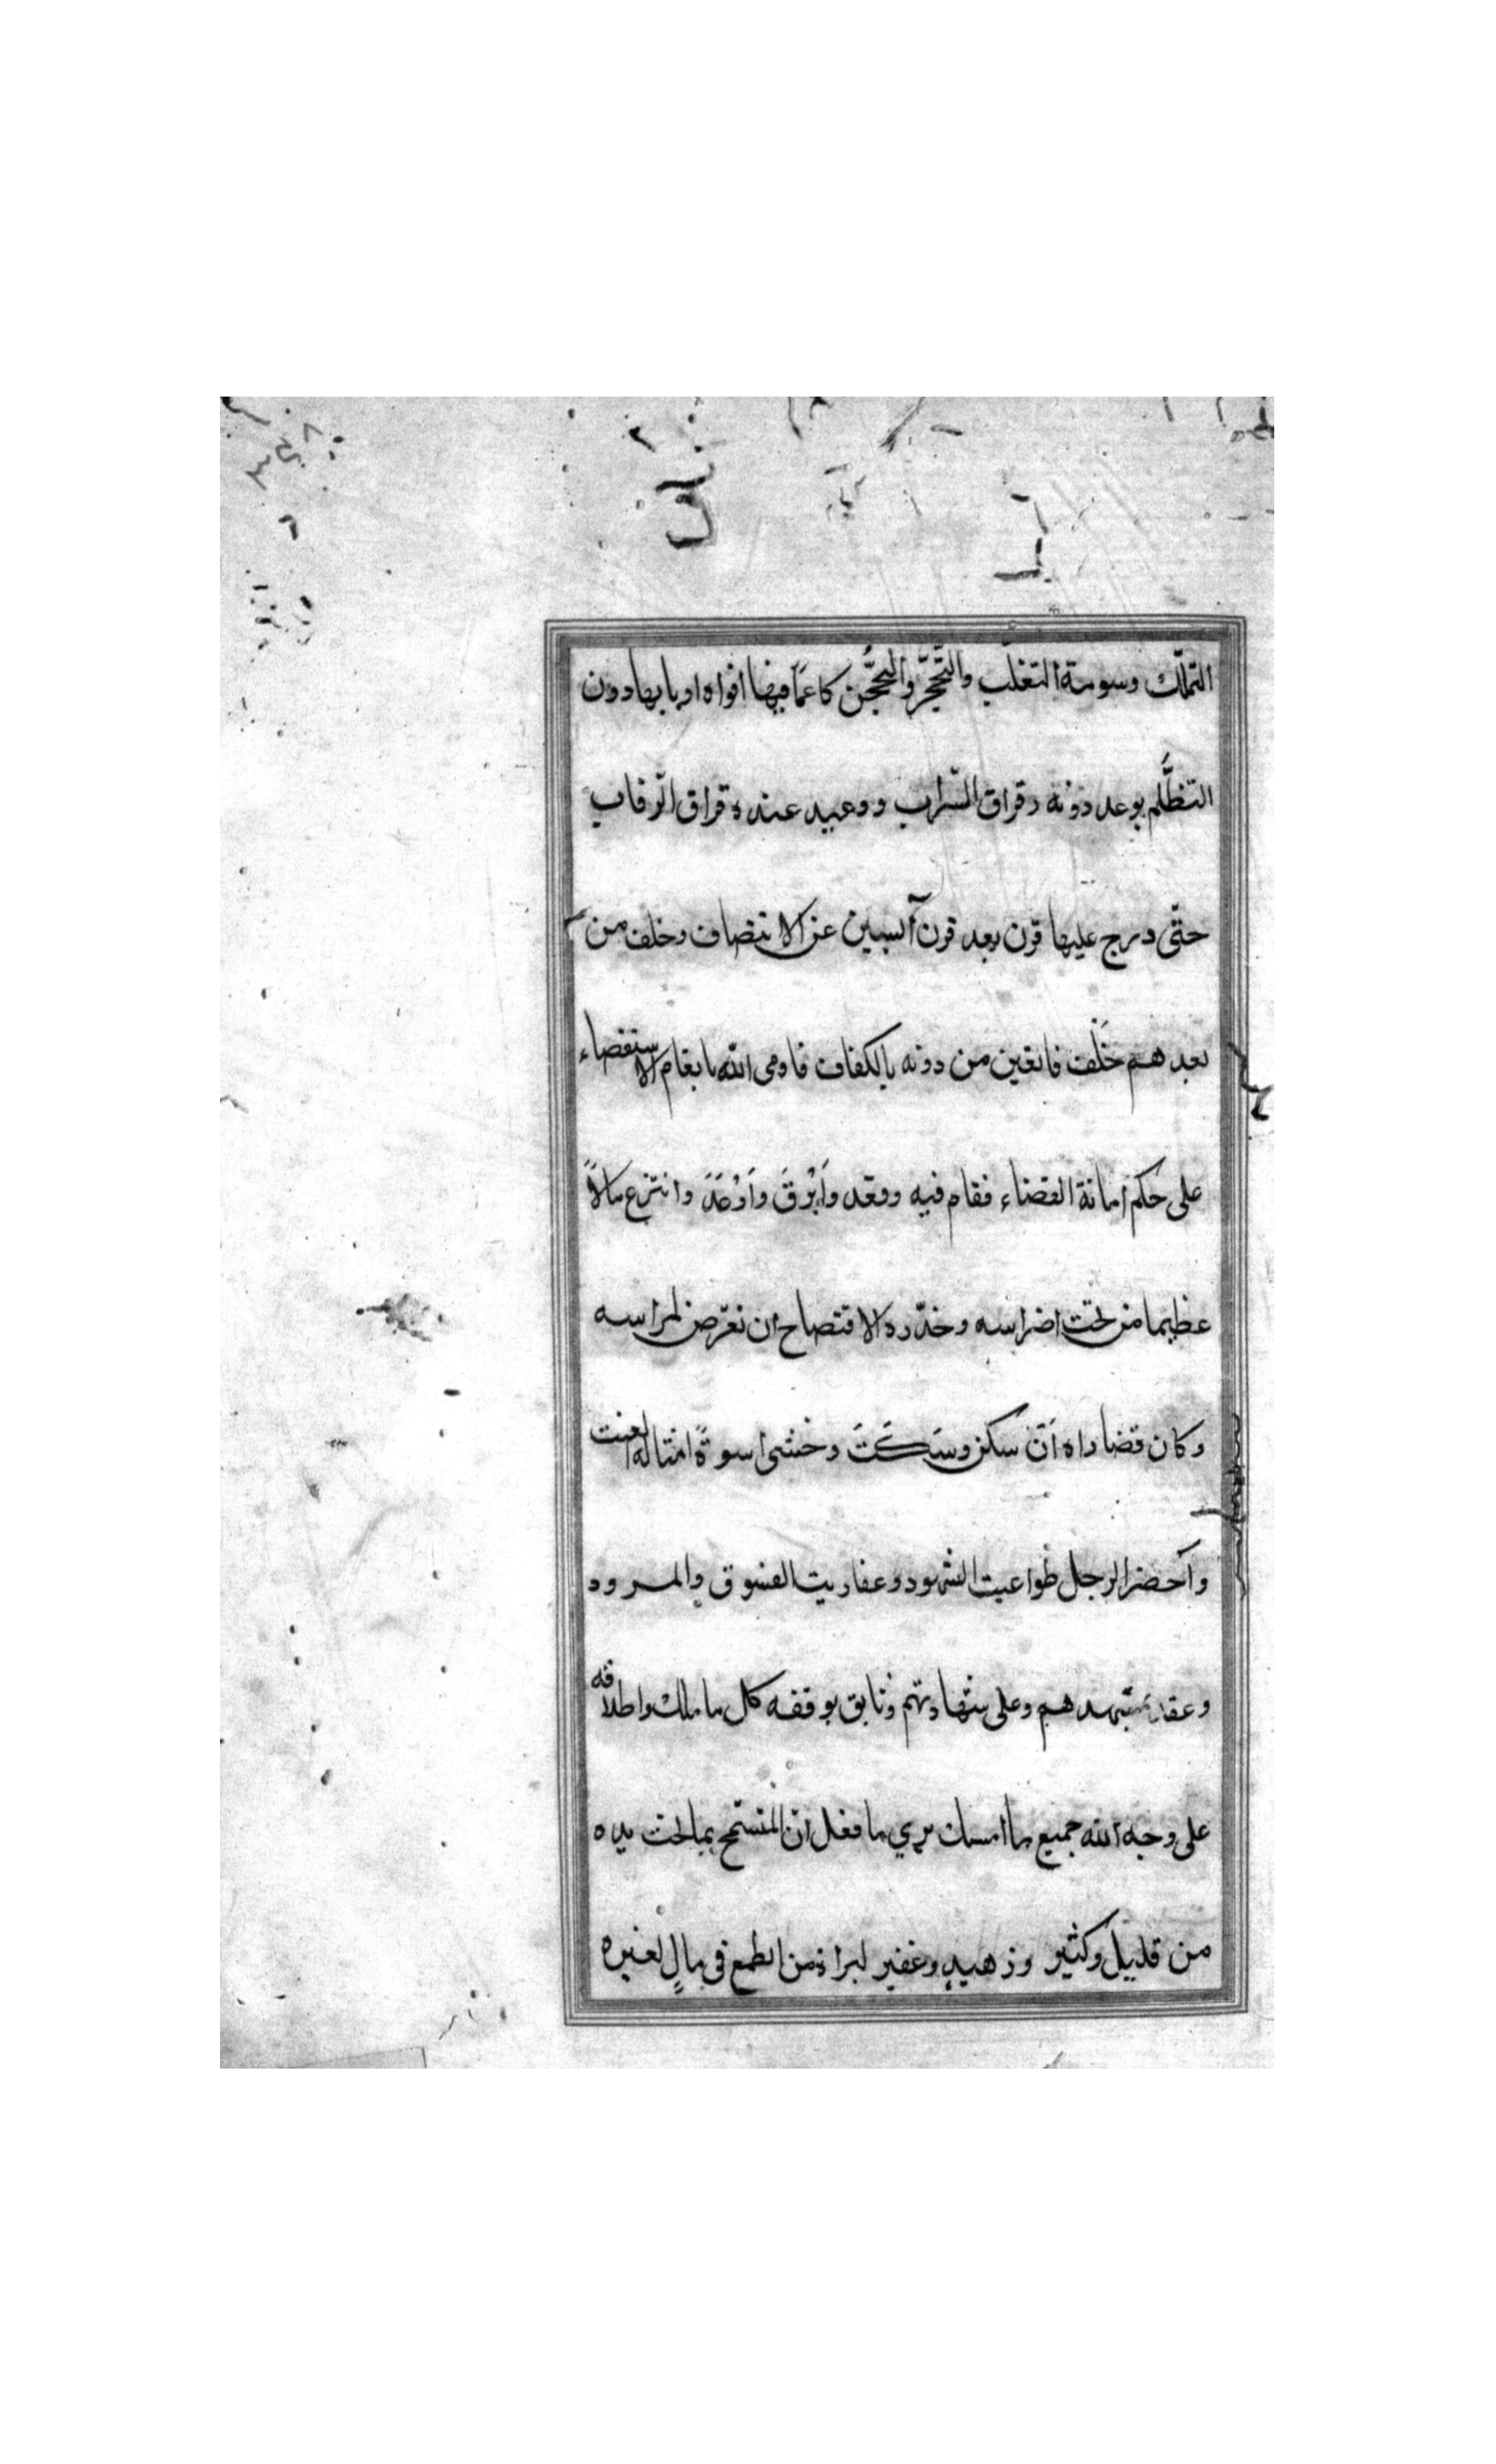 التملّك وسومة التغلّب والتّحجّر والتحجُّن كاعمًا فيها افواه اربابها دون
التظلُّم بوعد دونه رقراق السّراب ووعيد عنده قراق الرقاب
حتّى درج عليها قرن بعد قرن آئسين عن الانتصاف وخلف من
بعدهم خَلْف قانعين من دونه بالكفاف فاومى الله بابغام الاستقصاء
على حكم امانة القضاء فقام فيه وقعد وَاَبْرَقَ وَاَرْعَدَ وانتزع مالاً
عظيما من تحت اضراسه وحذّره الافتضاح ان تعرّض لمراسه
وكان قصاراه اَنْ سكن وسَكَتَ وخشى اسوةً امثاله العنت
وآحضر الرجل طواغيت الشهود وعفاريت الفسوق والمرود
وعقد بمشهدهم وعلى شهادتهم وثايق بوقفه كل ما ملك واطلاقه
على وجه الله جميع ما امسك يري ما فعل انّ المتسمّح بما تحت يده
من قليل وكثير وزهيد وغفير لبراة من الطمع فى مالٍ لغيره